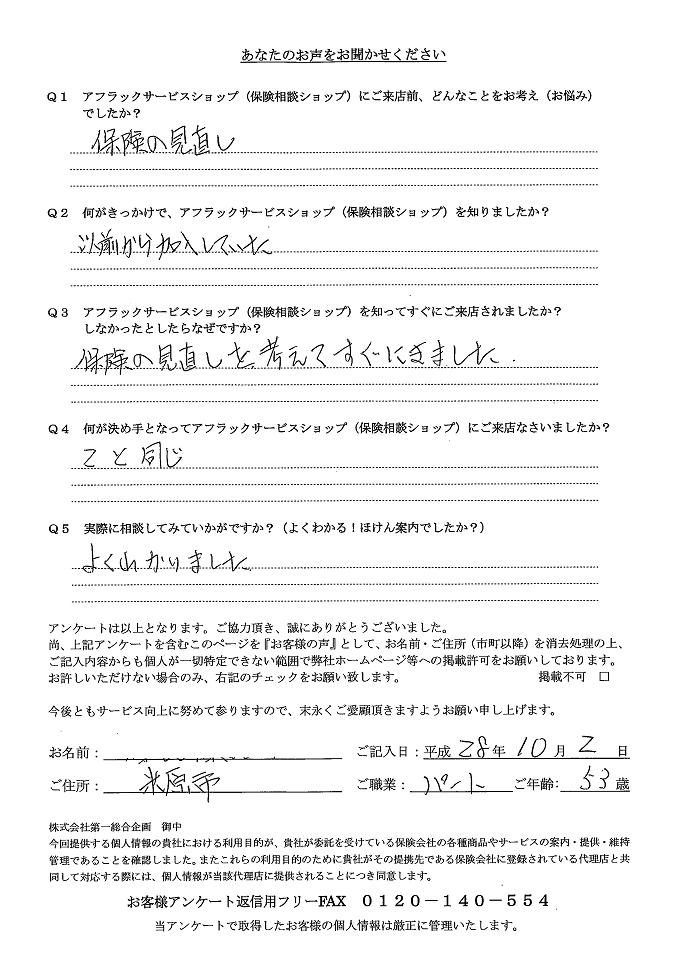 あなたのお声をお聞かせください
Q1 アフラックサービスショップ（保険相談ショップ）にご来店前、どんなことをお考え（お悩み）
でしたか？
保険の見直し
Q2 何がきっかけで、アフラックサービスショップ（保険相談ショップ）を知りましたか？
以前から加入していた
Q3 アフラックサービスショップ（保険相談ショップ）を知ってすぐにご来店されましたか？
しなかったとしたらなぜですか？
保険の見直しを考えてすぐにきました.
Q4 何が決め手となってアフラックサービスショップ（保険相談ショップ）にご来店なさいましたか？
と同じ
Q5 実際に相談してみていかがですか？（よくわかる！ほけん案内でしたか？）
よくわかりました
アンケートは以上となります。ご協力頂き、誠にありがとうございました。
尚、上記アンケートを含むこのページを『お客様の声』として、お名前・ご住所（市町以降）を消去処理の上、
ご記入内容からも個人が一切特定できない範囲で弊社ホームページ等への掲載許可をお願いしております。
お許しいただけない場合のみ、右記のチェックをお願い致します。 掲載不可 □
今後ともサービス向上に努めて参りますので、末永くご愛顧頂きますようお願い申し上げます。
お名前： ご記入日：平成 28年 10月 2日
ご住所： 米原市 ご職業：パート ご年齢：53歳
株式会社第一総合企画 御中
今回提供する個人情報の貴社における利用目的が、貴社が委託を受けている保険会社の各種商品やサービスの案内・提供・維持
管理であることを確認しました。またこれらの利用目的のために貴社がその提携先である保険会社に登録されている代理店と共
同して対応する際には、個人情報が当該代理店に提供されることにつき同意します。
お客様アンケート返信用フリーFAX 0120-140-554
当アンケートで取得したお客様の個人情報は厳正に管理いたします。